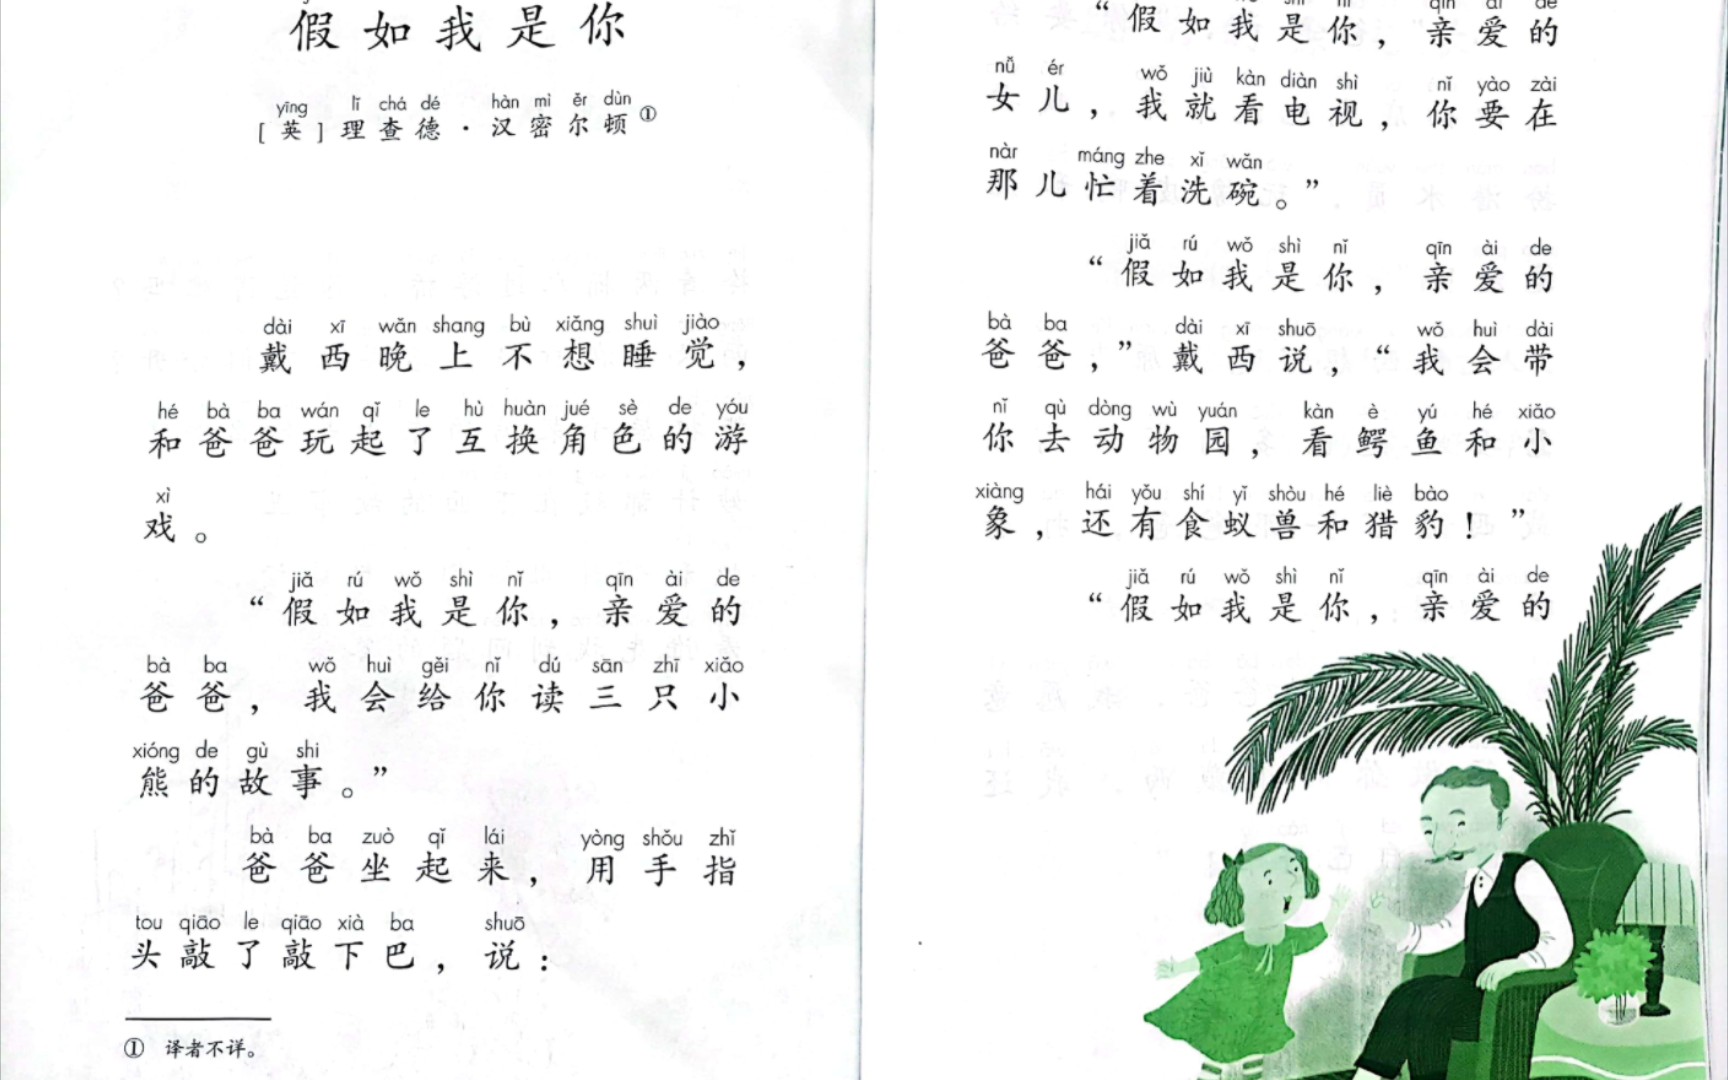 假如我是你
yīng lǐ chá dé hàn mì ěr dùn
[英]理查德·汉密尔顿①
dài xī wǎn shang bù xiǎng shuì jiào
戴西晚上不想睡觉，
hé bà ba wán qǐ le hù huàn jué sè de yóu
和爸爸玩起了互换角色的游
xì
戏。
jiǎ rú wǒ shì nǐ qīn ài de
“假如我是你，亲爱的
bà ba wǒ huì gěi nǐ dú sān zhī xiǎo
爸爸，我会给你读三只小
xióng de gù shi
熊的故事。”
bà ba zuò qǐ lái yòng shǒu zhǐ
爸爸坐起来，用手指
tou qiāo le qiāo xià ba shuō
头敲了敲下巴，说：
① 译者不详。
“假如我是你，亲爱的
nǚ ér wǒ jiù kàn diàn shì nǐ yào zài
女儿，我就看电视，你要在
nàr máng zhe xǐ wǎn
那儿忙着洗碗。”
jiǎ rú wǒ shì nǐ qīn ài de
“假如我是你，亲爱的
bà ba dài xī shuō wǒ huì dài
爸爸，”戴西说，“我会带
nǐ qù dòng wù yuán kàn è yú hé xiǎo
你去动物园，看鳄鱼和小
xiàng hái yǒu shí yǐ shòu hé liè bào
象，还有食蚁兽和猎豹！”
jiǎ rú wǒ shì nǐ qīn ài de
“假如我是你，亲爱的